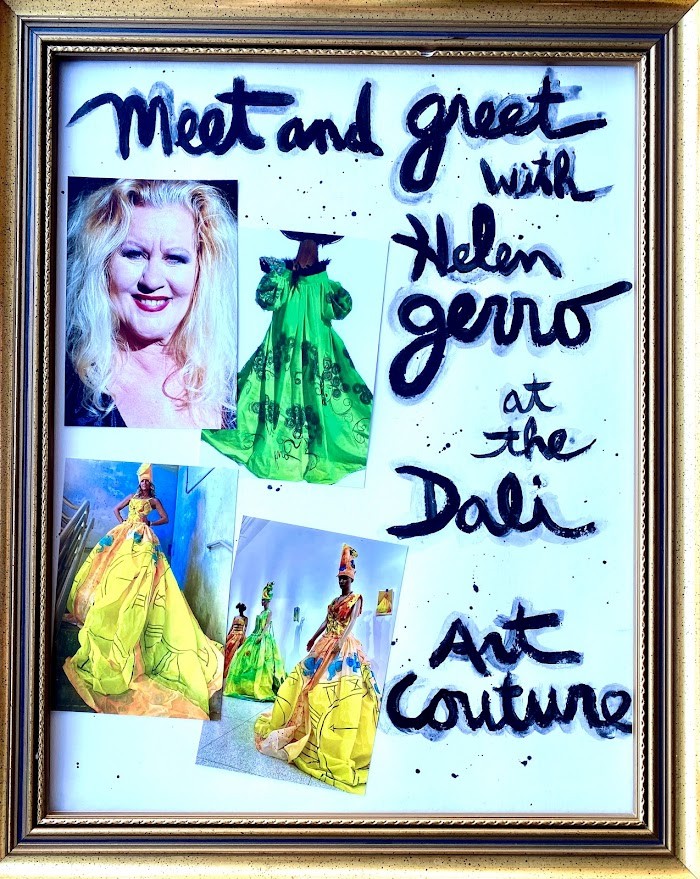 Meet and greet
with
Helen
gerro
at
the
Dali
Art
Couture